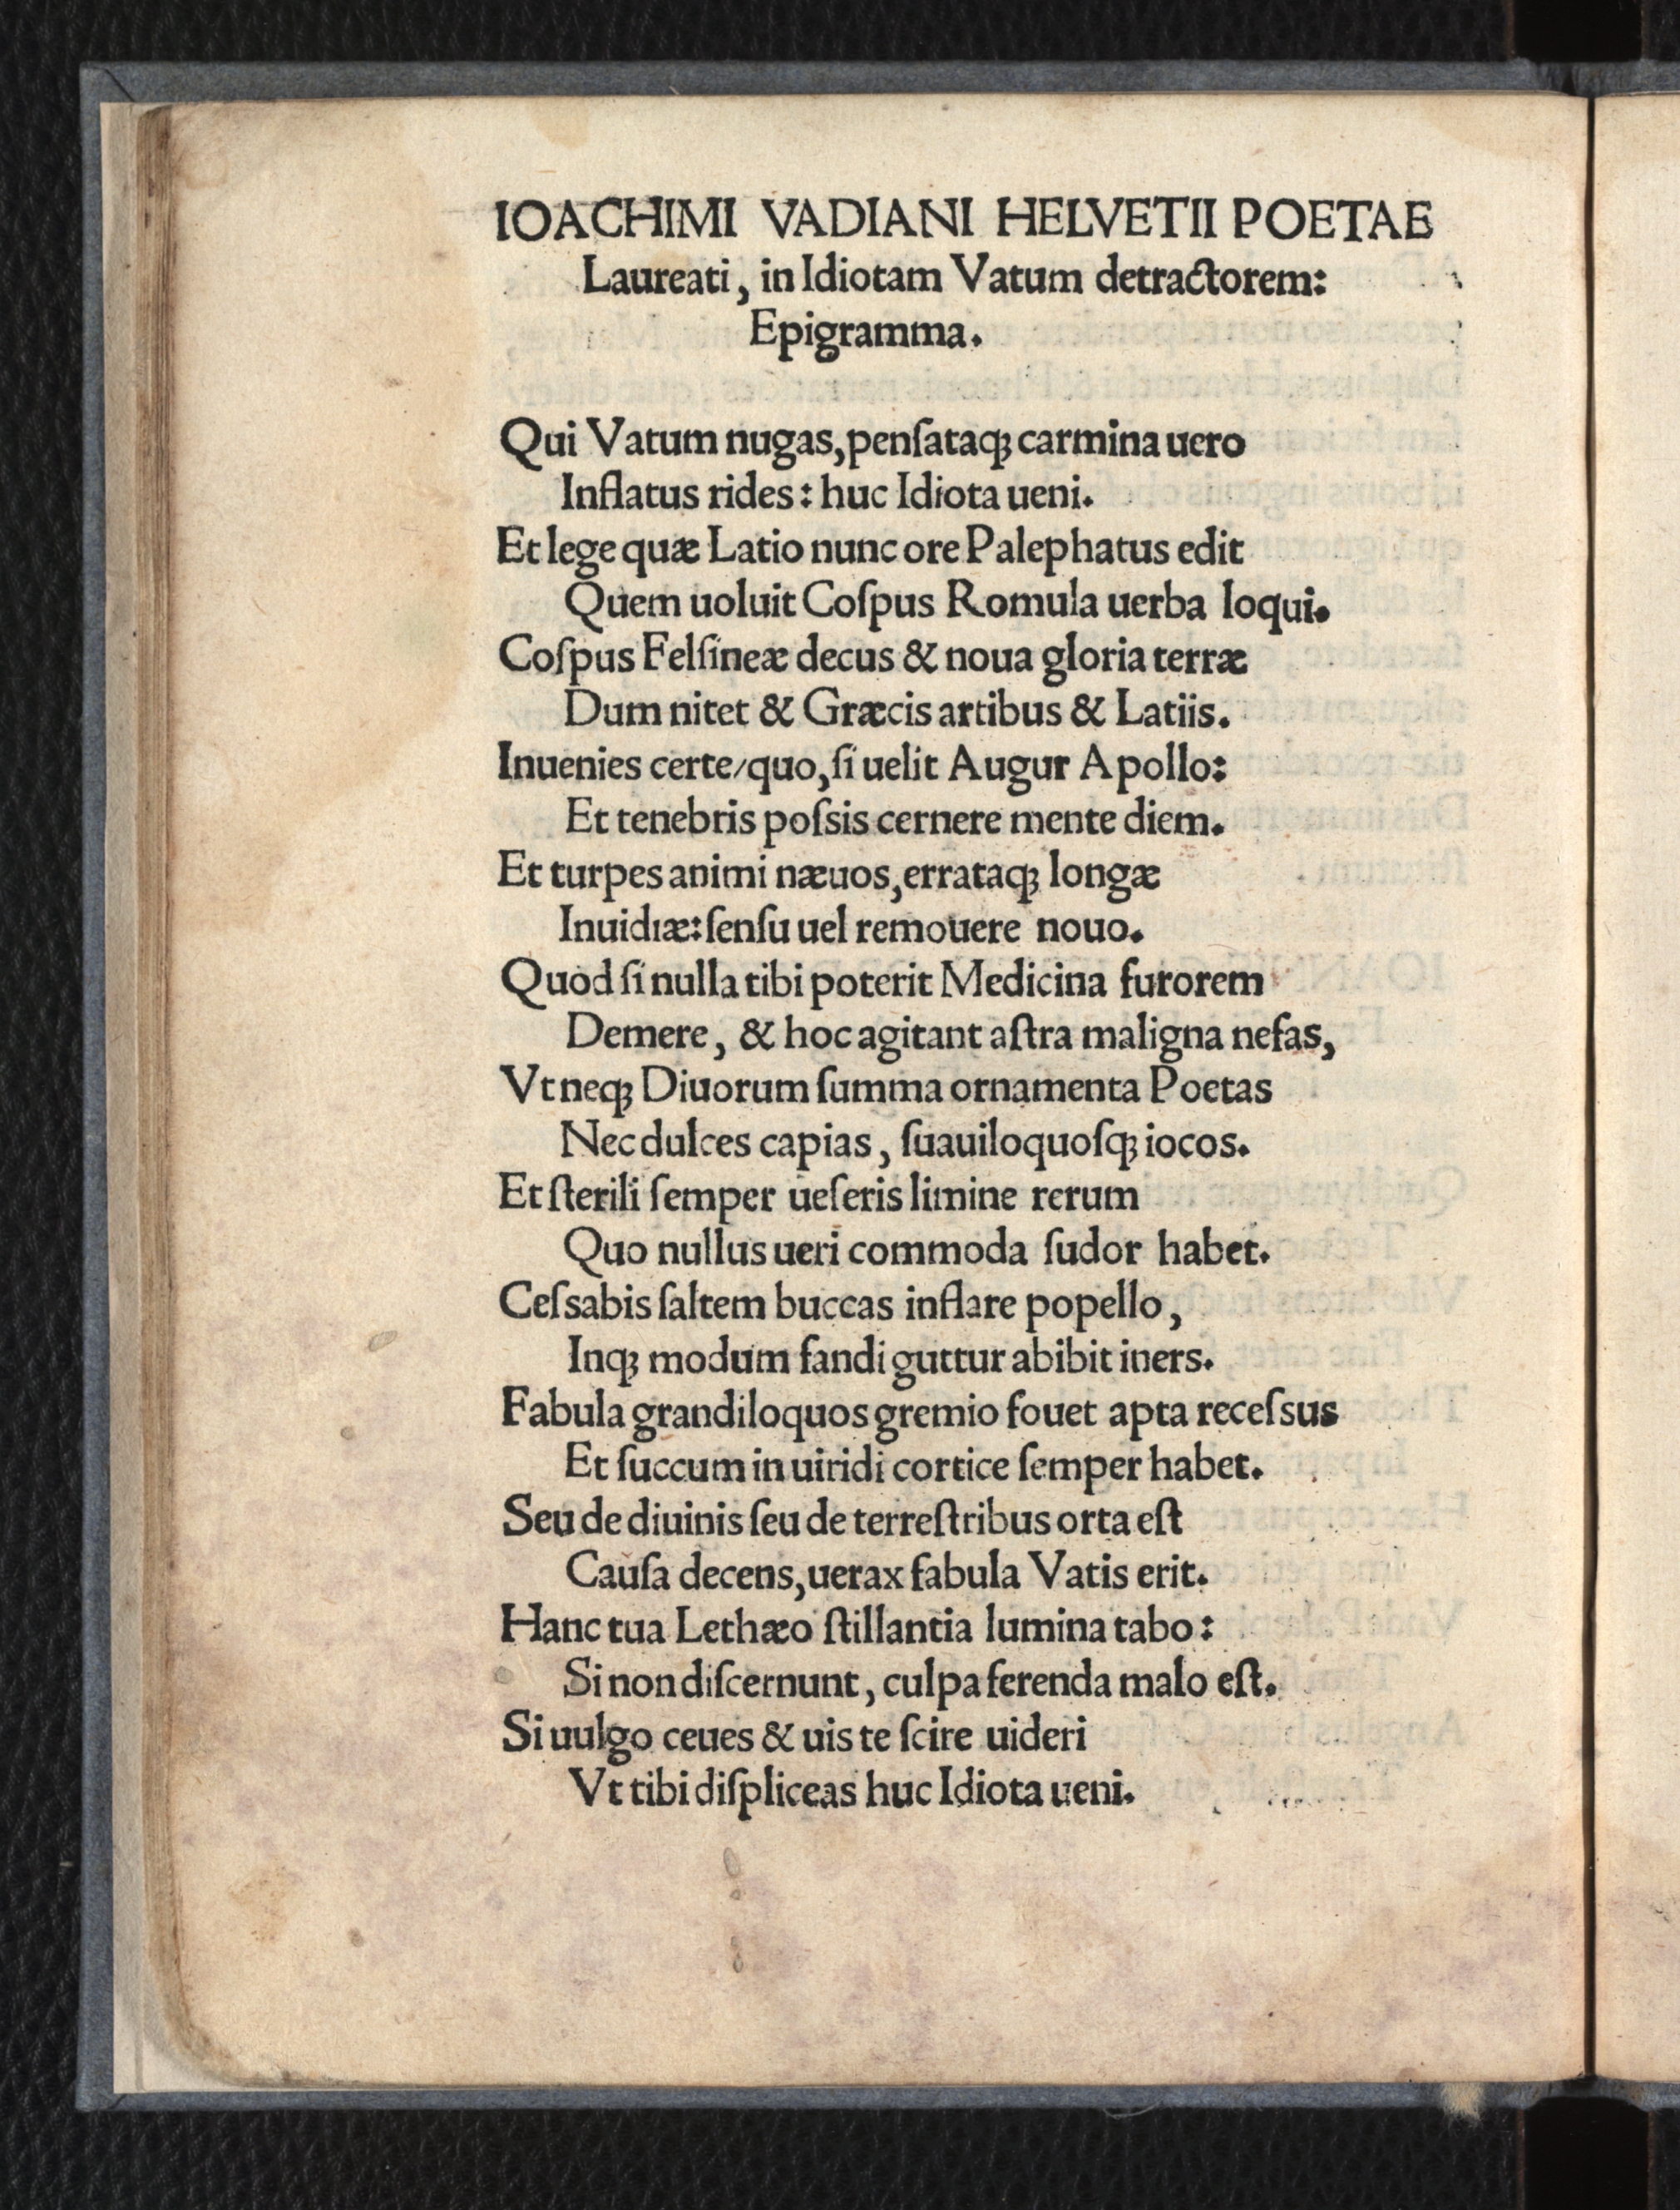 IOACHIMI VADIANI HELVETII POETAE
Laureati, in Idiotam Vatum detractorem:
Epigramma.
Qui Vatum nugas, penſataqꝫ carmina uero
Inflatus rides: huc Idiota ueni.
Et lege quæ Latio nunc ore Palephatus edit
Quem uoluit Coſpus Romula uerba loqui.
Coſpus Felſineæ decus & noua gloria terræ
Dum nitet & Græcis artibus & Latiis.
Inuenies certe/quo, ſi uelit Augur Apollo:
Et tenebris poſsis cernere mente diem.
Et turpes animi næuos, errataqꝫ longæ
Inuidiæ: ſenſu uel remouere nouo.
Quod ſi nulla tibi poterit Medicina furorem
Demere, & hoc agitant aſtra maligna nefas,
Vt neqꝫ Diuorum ſumma ornamenta Poetas
Nec dulces capias, ſuauiloquoſqꝫ iocos.
Et ſterili ſemper ueſeris limine rerum
Quo nullus ueri commoda ſudor habet.
Ceſsabis ſaltem buccas inflare popello,
Inqꝫ modum fandi guttur abibit iners.
Fabula grandiloquos gremio fouet apta receſsus
Et ſuccum in uiridi cortice ſemper habet.
Seu de diuinis ſeu de terreſtribus orta eſt
Cauſa decens, uerax fabula Vatis erit.
Hanc tua Lethæo ſtillantia lumina tabo:
Si non diſcernunt, culpa ferenda malo eſt.
Si uulgo ceues & uis te ſcire uideri
Vt tibi diſpliceas huc Idiota ueni.